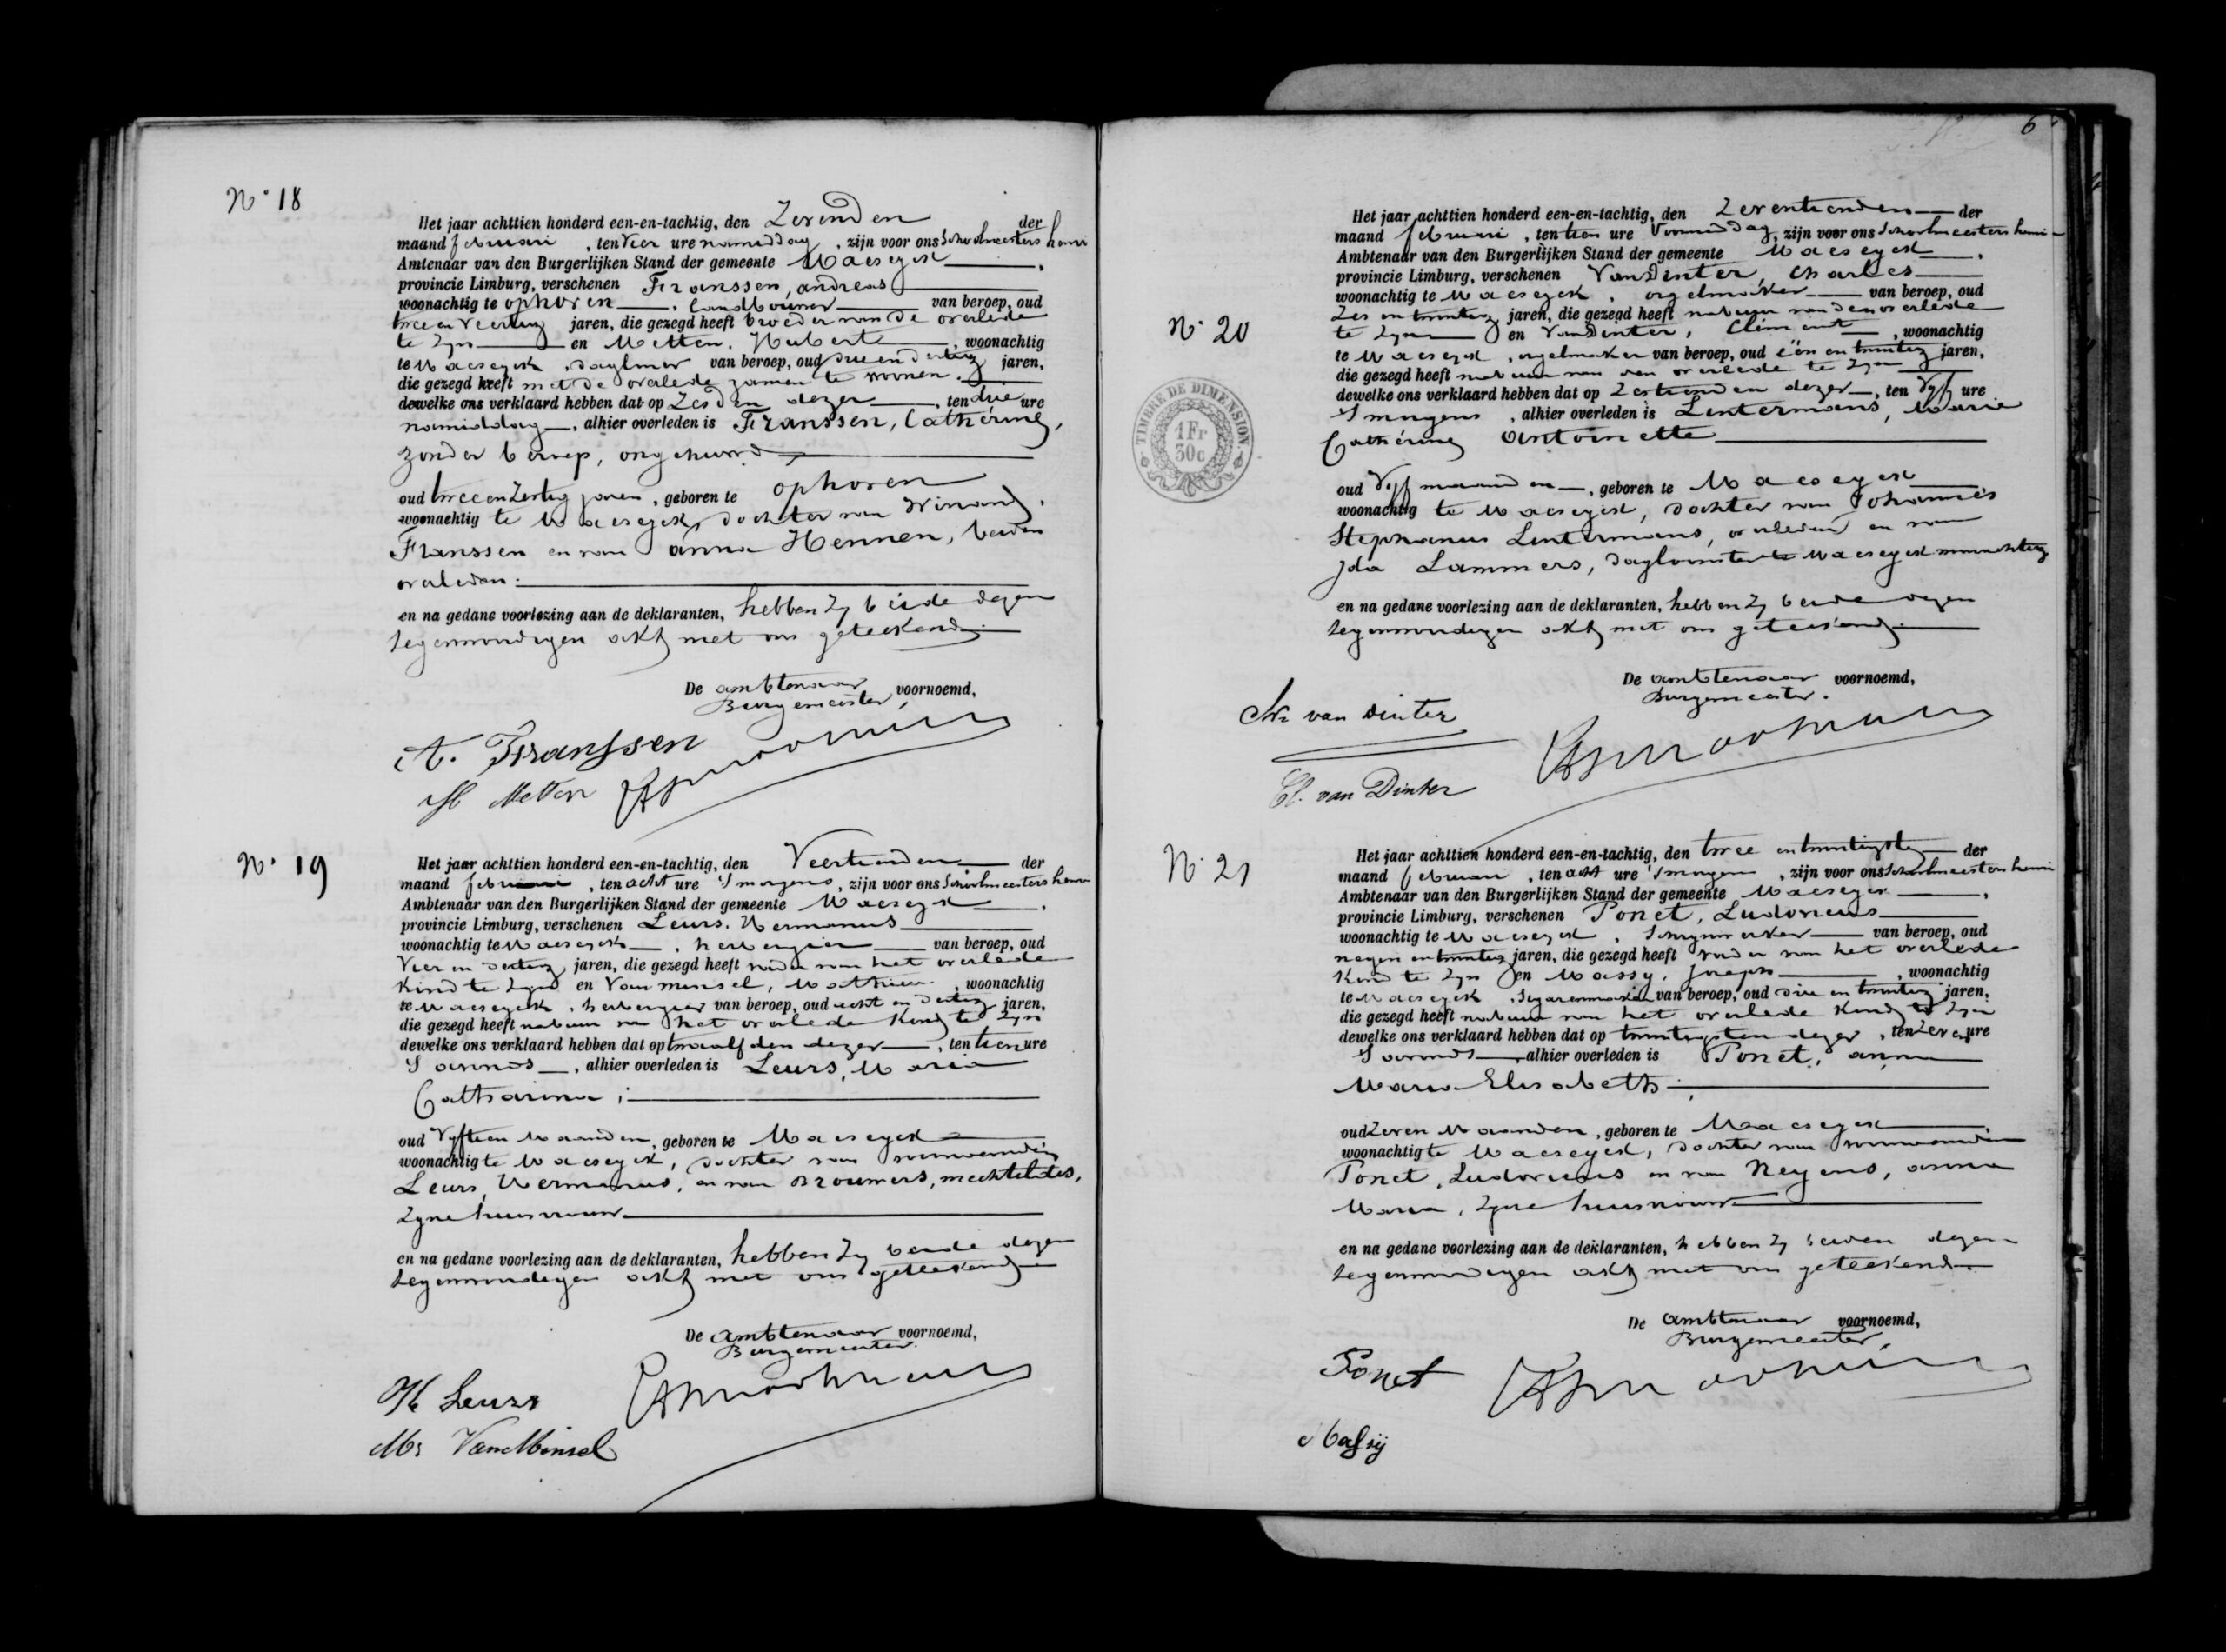 N° 18
Het jaar achttien honderd een-en-tachtig, den Zevenden der
maand februari , ten vier ure namiddag , zijn voor ons Schoolmeesters henri
Amtenaar van den Burgerlijken Stand der gemeente Maeseyck ,
provincie Limburg, verschenen Franssen, andreas
woonachtig te ophoven , landbouwer van beroep, oud
twee en veertig jaren, die gezegd heeft broeder van de overlede
te zyn en Metten, Hubert , woonachtig
te Maeseyck , dagloner van beroep, oud drie en dertig jaren,
die gezegd heeft met de overlede zamen te woonen.
dewelke ons verklaard hebben dat op Zesden dezer , ten drie ure
namiddag , alhier overleden is Franssen, Catherine,
zonder beroep, ongehuwd
oud twee en zestig jaren , geboren te ophoven
woonachtig te Maeseyck, dochter van Winand
Franssen en van anna Hennen, beiden
overleden.
en na gedane voorlezing aan de deklaranten, hebben zy beide dezen
tegenwoordigen akt met ons geteekend.
De ambtenaar voornoemd,
Burgemeester,
A. Franssen
H Metten
N° 19
Het jaar achttien honderd een-en-tachtig, den Veertienden der
maand februari , ten acht ure 's morgens , zijn voor ons Schoolmeesters henri
Ambtenaar van den Burgerlijken Stand der gemeente Maeseyck ,
provincie Limburg, verschenen Leurs, Hermanus
woonachtig te Maeseyck , herbergier van beroep, oud
Vier en dertig jaren, die gezegd heeft vader van het overlede
Kind te zyn en Van minsel, Mathieu , woonachtig
te Maeseyck , herbergier van beroep, oud acht en dertig jaren,
die gezegd heeft nabuur van het overlede Kind te zyn
dewelke ons verklaard hebben dat op twaalfden dezer , ten tien ure
'S avonds , alhier overleden is Leurs, Maria
Catharina ;
oud Vyftien Maanden , geboren te Maeseyck
woonachtig te Maeseyck, dochter van
Leurs, Hermanus, en van Brouwers, mechtildis,
Zyne huisvrouw
en na gedane voorlezing aan de deklaranten, hebben zy beide dezen
tegenwoordigen akt met ons geteekend
De Ambtenaar voornoemd,
Burgemeester.
H Leurs
Ms VanMinsel
6
N° 20
TIMBRE DE DIMENSION
1 Fr
30c
Het jaar achttien honderd een-en-tachtig, den Zeventienden der
maand februari , ten tien ure Voormiddag , zijn voor ons Schoolmeesters henri
Ambtenaar van den Burgerlijken Stand der gemeente Maeseyck ,
provincie Limburg, verschenen VanDinter, Charles
woonachtig te Maeseyck , orgelmaker van beroep, oud
Zes en twintig jaren, die gezegd heeft nabuur van den overlede
te zyn en VanDinter, Clément , woonachtig
te Maeseyck , orgelmaker van beroep, oud één en twintig jaren,
die gezegd heeft nabuur van den overlede te zyn
dewelke ons verklaard hebben dat op Zestienden dezer , ten Vyf ure
'S morgens , alhier overleden is Lentermans, Marie
Catherine Antoinette
oud Vyf maanden , geboren te Maeseyck
woonachtig te Maeseyck, dochter van Johannes
Stephanus Lentermans, overleden en van
Ida Lammers, Dagloonster te Maeseyck woonachtig
en na gedane voorlezing aan de deklaranten, hebben zy beide dezen
tegenwoordigen akt met ons geteekend.
De Ambtenaar voornoemd,
Burgemeester.
van Dinter
Cl. van Dinter
N° 21
Het jaar achttien honderd een-en-tachtig, den twee en twintigste der
maand februari , ten acht ure 's morgens , zijn voor ons Schoolmeesters henri
Ambtenaar van den Burgerlijken Stand der gemeente Maeseyck ,
provincie Limburg, verschenen Ponet, Ludovicus
woonachtig te Maeseyck , Schrynwerker van beroep, oud
negen en twintig jaren, die gezegd heeft vader van het overlede
Kind te zyn en Massy, joseph , woonachtig
te Maeseyck , Segarenmaker van beroep, oud drie en twintig jaren,
die gezegd heeft nabuur van het overlede Kind te zyn
dewelke ons verklaard hebben dat op twintigsten dezer , ten zeven ure
'S avonds alhier overleden is Ponet, anna
Maria Elisabeth
oud Zeven Maanden , geboren te Maeseyck
woonachtig te Maeseyck, dochter van
Ponet, Ludovicus en van Neyens, anna
Maria, zyne huisvrouw
en na gedane voorlezing aan de deklaranten, hebben zy beiden dezen
tegenwoordigen akt met ons geteekend.
De Ambtenaar voornoemd,
Burgemeester,
Ponet
Massij